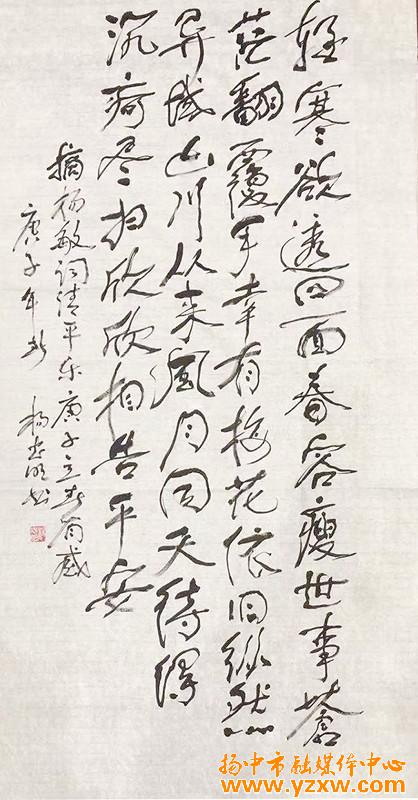 轻寒欲透四面春容瘦世事苍
茫翻覆手幸有梅花依旧纵然
异域山川从来风月同天待得
沉疴尽扫欣欣相告平安
摘杨敏词清平乐庚子立春有感
庚子年 杨
扬中市融媒体中心
www.yzxw.com